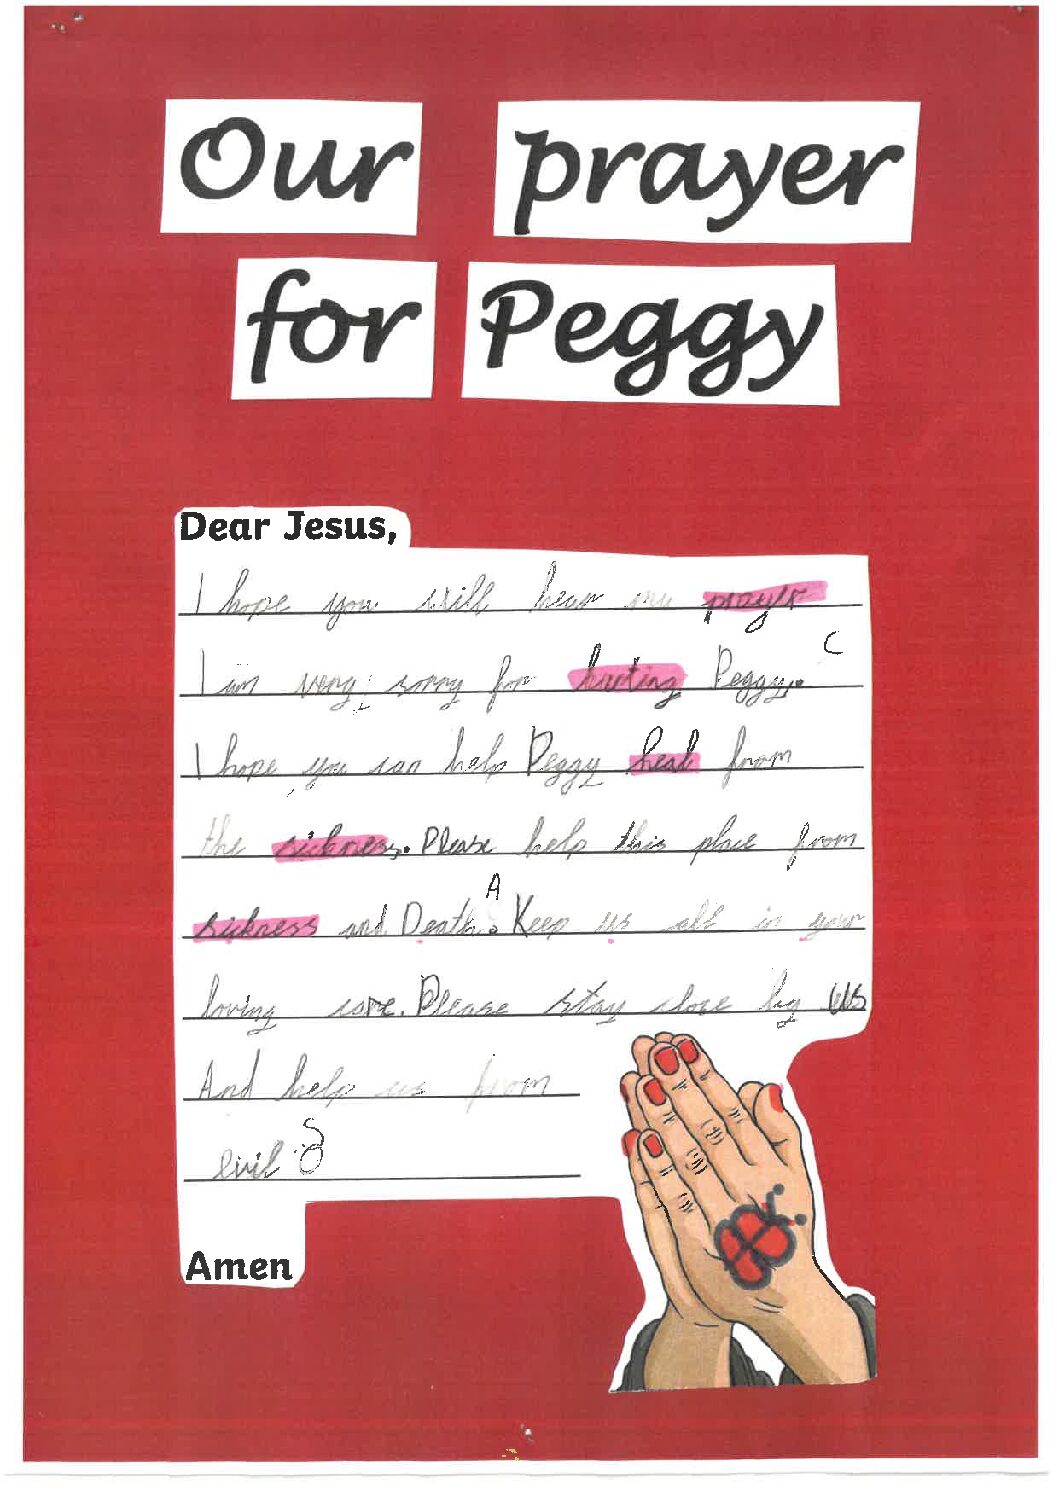 Our prayer
for Peggy
Dear Jesus,
I hope you still hear my
I am very sorry for Peggy.
C
I hope you can help Peggy heal from
the sickness. Please help this place from
A
sickness and Death. Keep us all in your
loving care. Please stay close by us
And help us from
evil
Amen